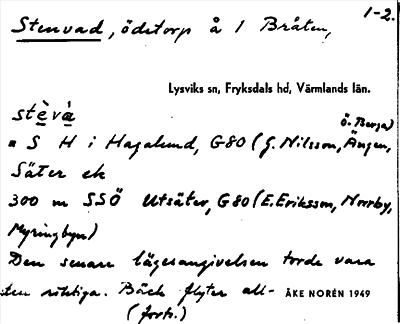 1-2.
Stenvad, ödetorp å 1 Bråten,
Lysviks sn, Fryksdals hd, Värmlands län.
stè̱và̱
Ö. Berga)
" S H i Hagalund, G80 (G. Nilsson, Ängen,
Säter ek
300 m SSÖ Utsäter, G80 (E. Eriksson, Norrby,
Myringbyn)
Den senare lägesangivelsen torde vara
den riktiga. Bäck flyter all-
ÅKE NORÉN 1949
(forts.)